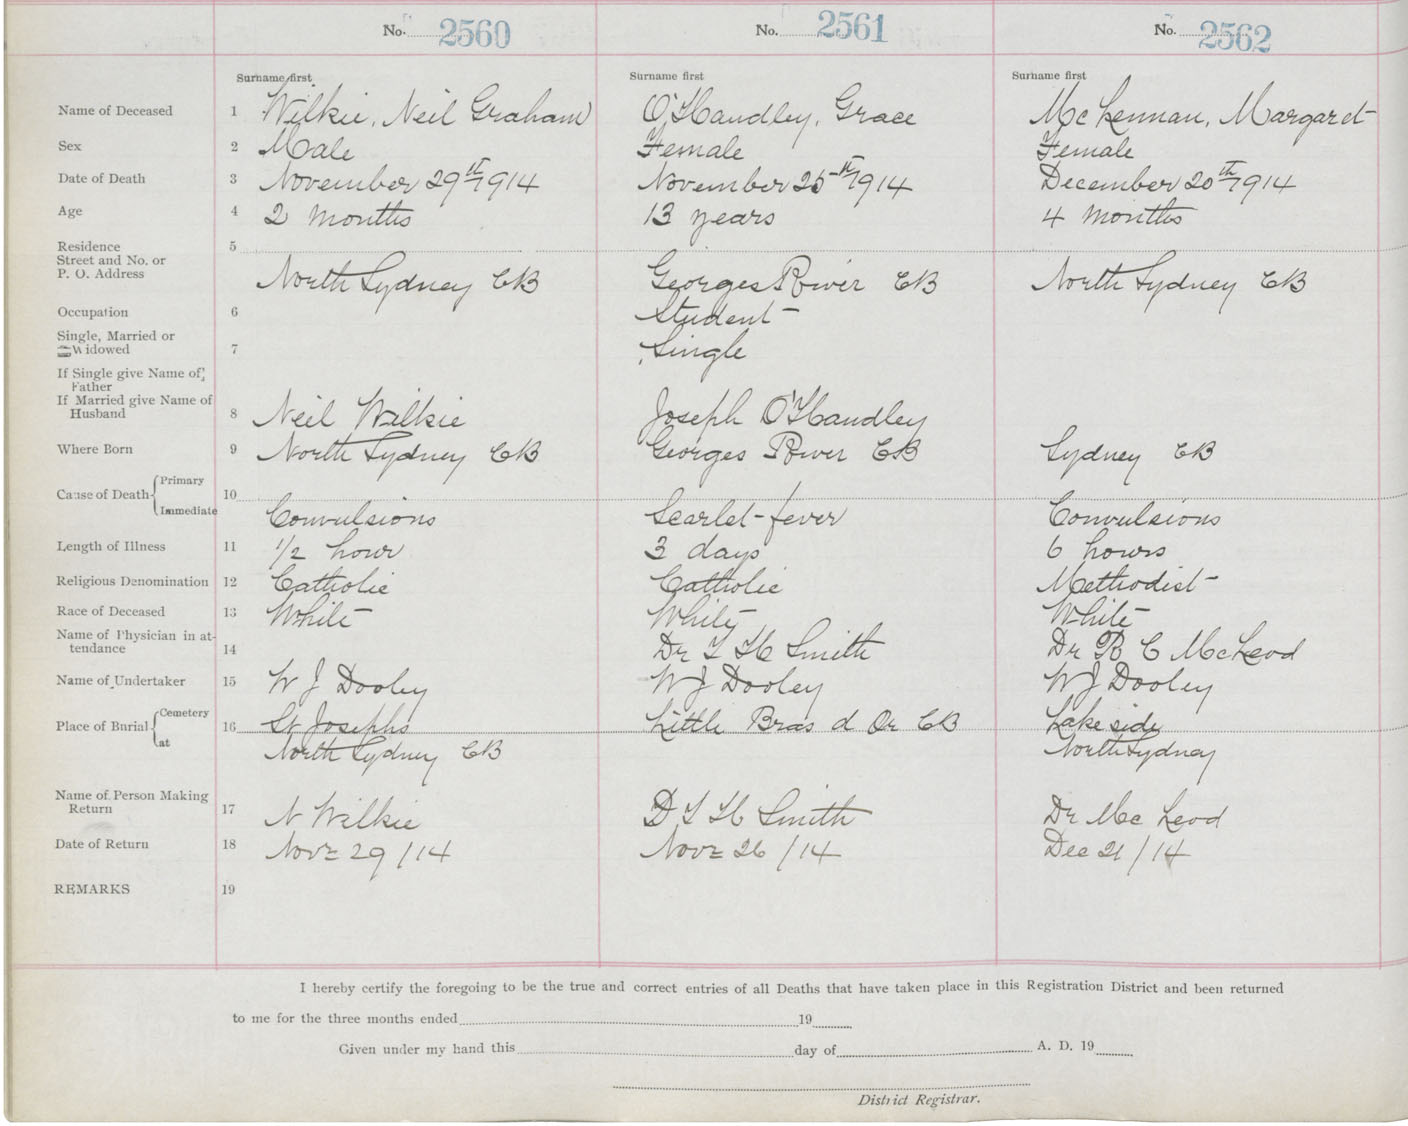 No. 2560 No. 2561 No. 2562
Surname first Surname first Surname first
Name of Deceased 1 Wilkie, Neil Graham O'Handley, Grace McKennan, Margaret
Sex 2 Male Female Female
Date of Death 3 November 29th 1914 November 25th 1914 December 20th 1914
Age 4 2 months 13 years 4 months
Residence 5
Street and No. or
P. O. Address North Sydney CB Georges River CB North Sydney CB
Occupation 6 Student
Single, Married or
Widowed 7 Single
If Single give Name of
Father
If Married give Name of
Husband 8 Neil Wilkie Joseph O'Handley
Where Born 9 North Sydney CB Georges River CB Sydney CB
Primary
Cause of Death 10
Immediate Convulsions Scarlet fever Convulsions
Length of Illness 11 1/2 hour 3 days 6 hours
Religious Denomination 12 Catholic Catholic Methodist
Race of Deceased 13 White White White
Name of Physician in at-
tendance 14 Dr Smith Dr R C McLeod
Name of Undertaker 15 W J Dooley W J Dooley W J Dooley
Cemetery
Place of Burial 16 St Josephs Little Bras d Or CB Lakeside
at North Sydney CB North Sydney
Name of Person Making
Return 17 N Wilkie Smith Dr McLeod
Date of Return 18 Novr 29/14 Novr 26/14 Dec 21/14
REMARKS 19
I hereby certify the foregoing to be the true and correct entries of all Deaths that have taken place in this Registration District and been returned
to me for the three months ended 19
Given under my hand this day of A. D. 19
District Registrar.